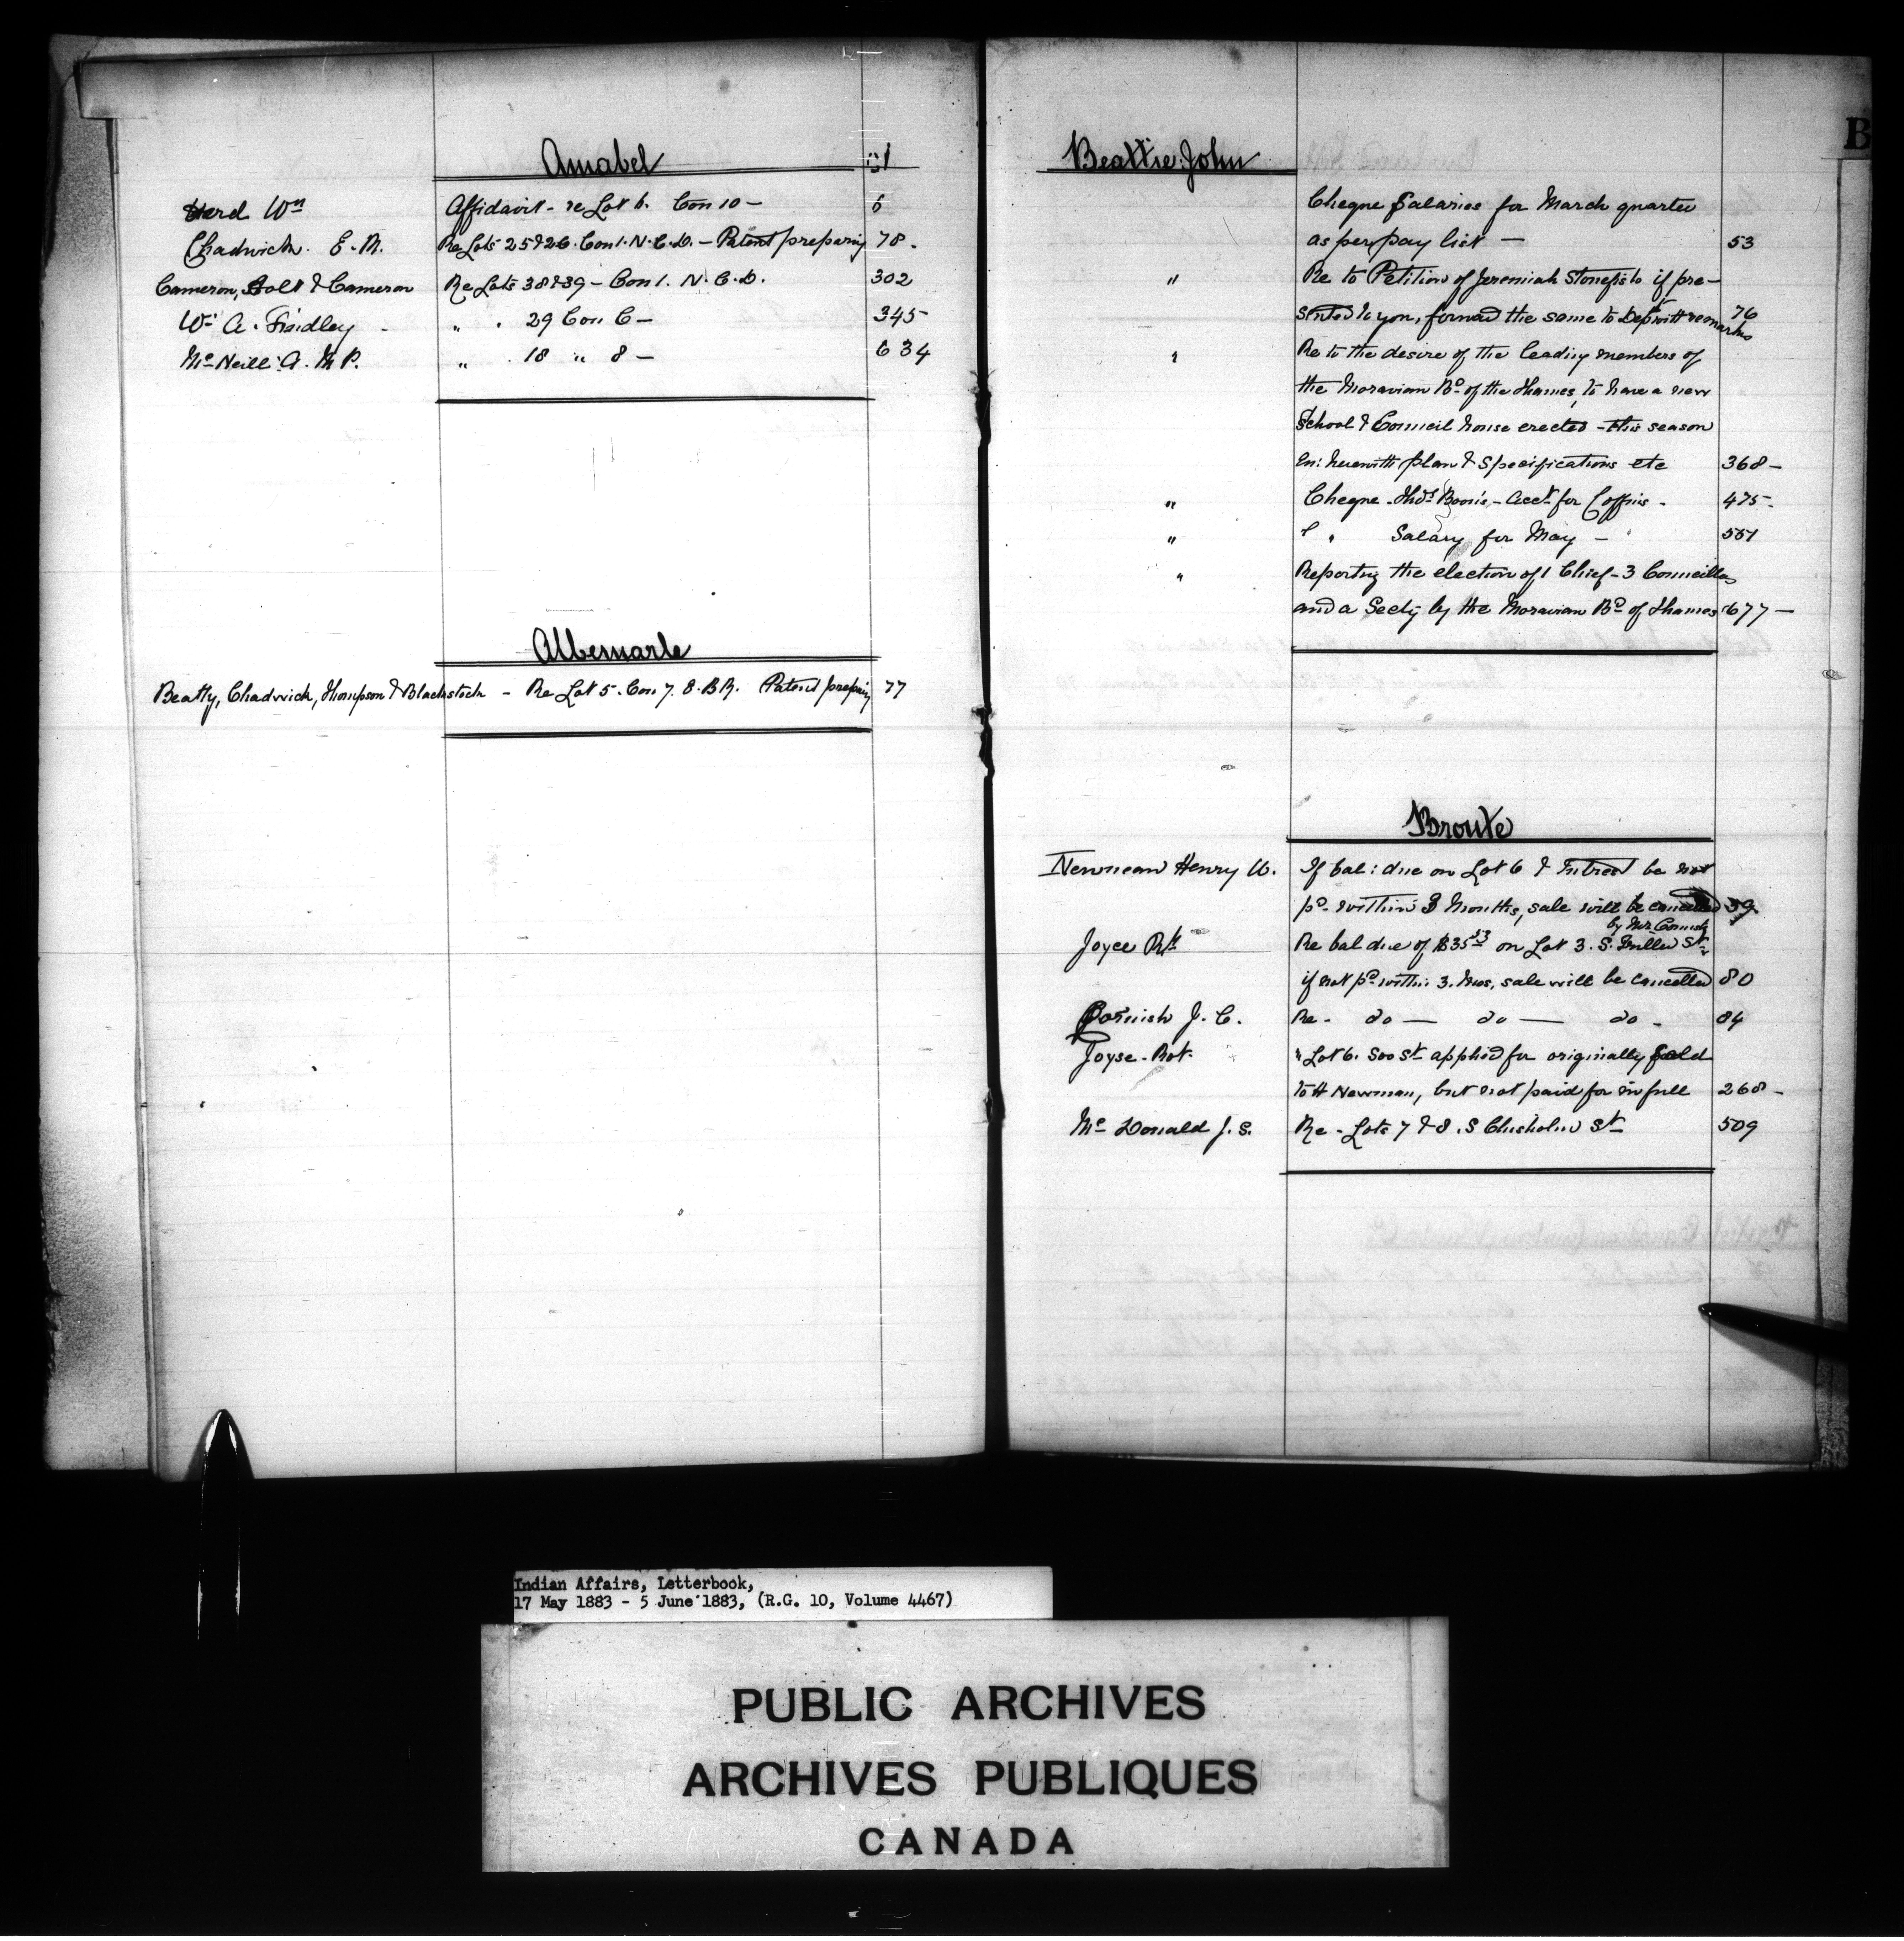 Amabel
Herd Wm Affidavit - re Lot 6. Con 10 - 6
Chadwick. E. M. Re Lots 25 & 26. Con 1. N. C. D. - Patent preparing 78.
Cameron, Holt & Cameron Re Lots 38 & 39 - Con 1. N. C. D. 302
Wm A. Findley " . 29 Con C - 345
McNeill A. M P. " . 18 " 8 - 634
Albemarle
Beatty, Chadwick, Thompson & Blackstock - Re Lot 5. Con 7. E. B R. Patent preparing 77
B
Beattie John
Cheque Salaries for March quarter
as per pay list - 53
" Re to Petition of Jeremiah Stonefish if pre-
sented to you, forward the same to Dept with remarks 76
" Re to the desire of the leading members of
the Moravian Bd of the Thames, to have a new
School & Council house erected - this season
En: herewith plan & Specifications etc 368 -
" Cheque - Thos Boon's - acct for Coffins - 475 -
" " " Salary for May - 557
" Reporting the election of 1 Chief - 3 Councillors
and a Secty by the Moravian Bd of Thames 677 -
Bronte
Newman Henry W. If bal: due on Lot 6 & Intrest be not
pd within 3 Months, sale will be cancelled 39.
by Mr. Cornish
Joyce Rt Re bal due of $35 53 on Lot 3. S. Miller St
if not pd within 3. Mos, sale will be cancelled 80
Cornish J. C. Re - do - do - do - 84
Joyse - Rot. " Lot 6. Soo St applied for originally Sold
to H Newman, but not paid for in full 268 -
McDonald J. S. Re - Lots 7 & 8. S Chisholm St 509
Indian Affairs, Letterbook,
17 May 1883 - 5 June 1883, (R.G. 10, Volume 4467)
PUBLIC ARCHIVES
ARCHIVES PUBLIQUES
CANADA